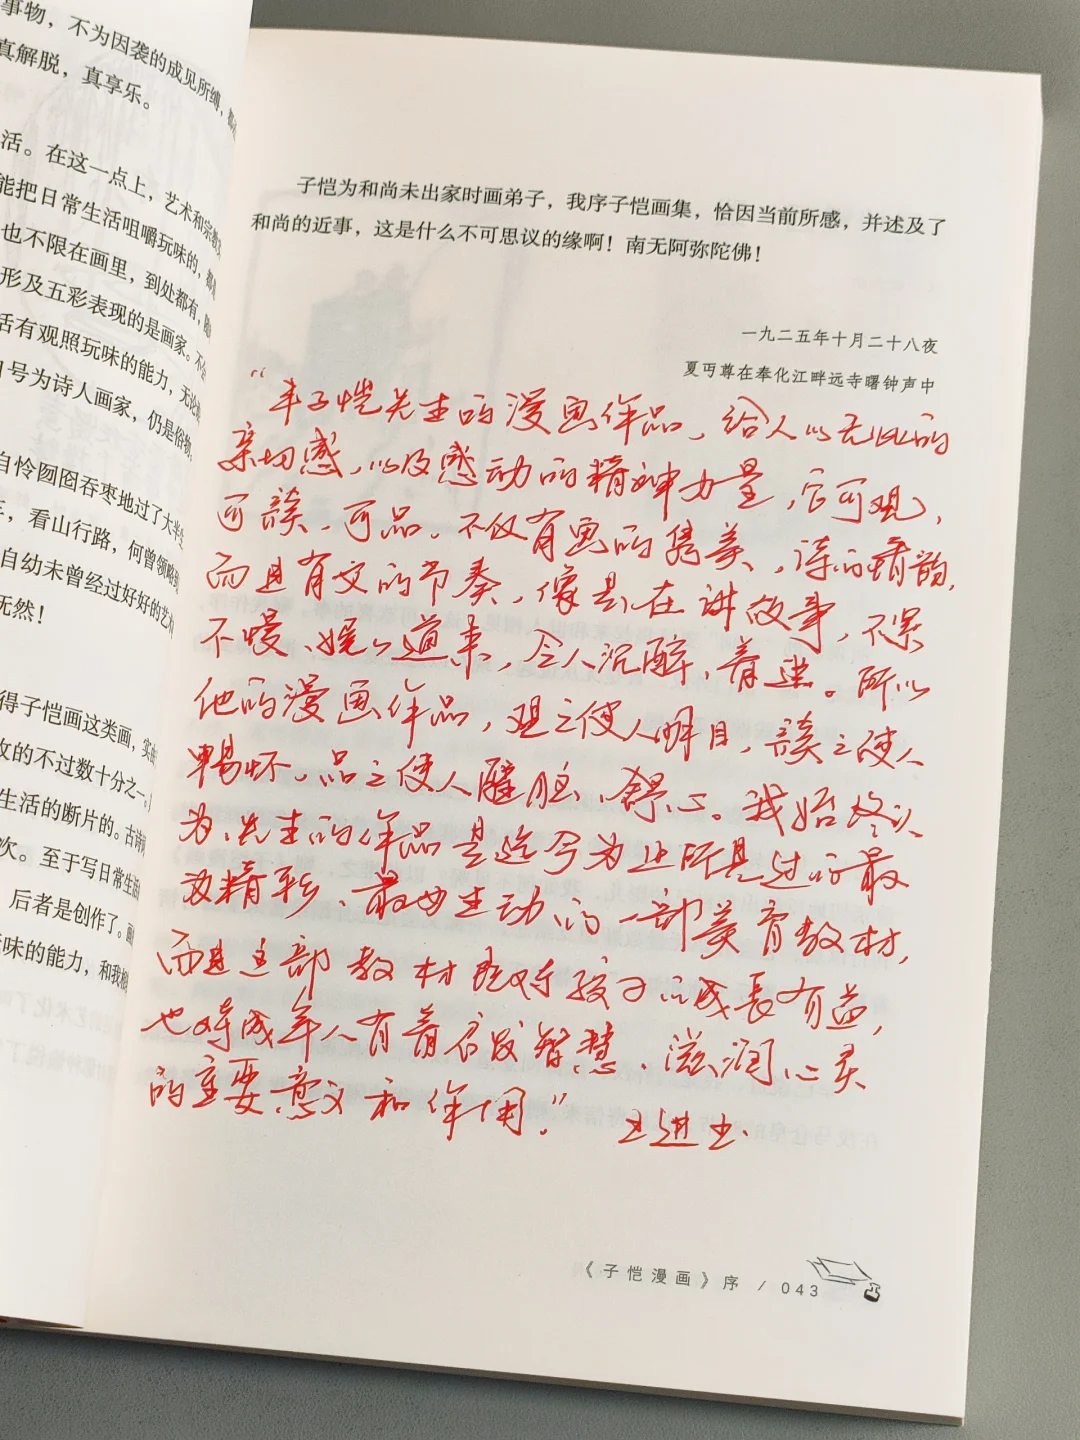 事物，不为因袭的成见所缚，
真解脱，真享乐。
活。在这一点上，艺术和宗教
能把日常生活咀嚼玩味的，都
也不限在画里，到处都有，随
形及五彩表现的是画家。不会
活有观照玩味的能力，无论
自号为诗人画家，仍是俗物。
自怜囫囵吞枣地过了大半生
车，看山行路，何曾领略到
自幼未曾经过好好的艺术
无然！
得子恺画这类画，实由
收的不过数十分之一，
生活的断片的。古诗词
次。至于写日常生活
后者是创作了。画
玩味的能力，和我
子恺为和尚未出家时画弟子，我序子恺画集，恰因当前所感，并述及了
和尚的近事，这是什么不可思议的缘啊！南无阿弥陀佛！
一九二五年十月二十八夜
夏丏尊在奉化江畔远寺曙钟声中
“丰子恺先生的漫画作品，给人以无比的
亲切感，以及感动的精神力量，它可观，
可读、可品。不仅有画的隽美，诗的精韵，
而且有文的节奏，像是在讲故事，不紧
不慢、娓々道来，令人沉醉、着迷。所以
他的漫画作品，观之使人明目，读之使人
畅怀，品之使人醒脑、舒心。我始终认
为，先生的作品是迄今为止所见过的最
为精彩、最为生动的一部美育教材，
而且这部教材既对孩子的成长有益，
也对成年人有着启发智慧、滋润心灵
的重要意义和作用。” 王进玉
《子恺漫画》序 / 043